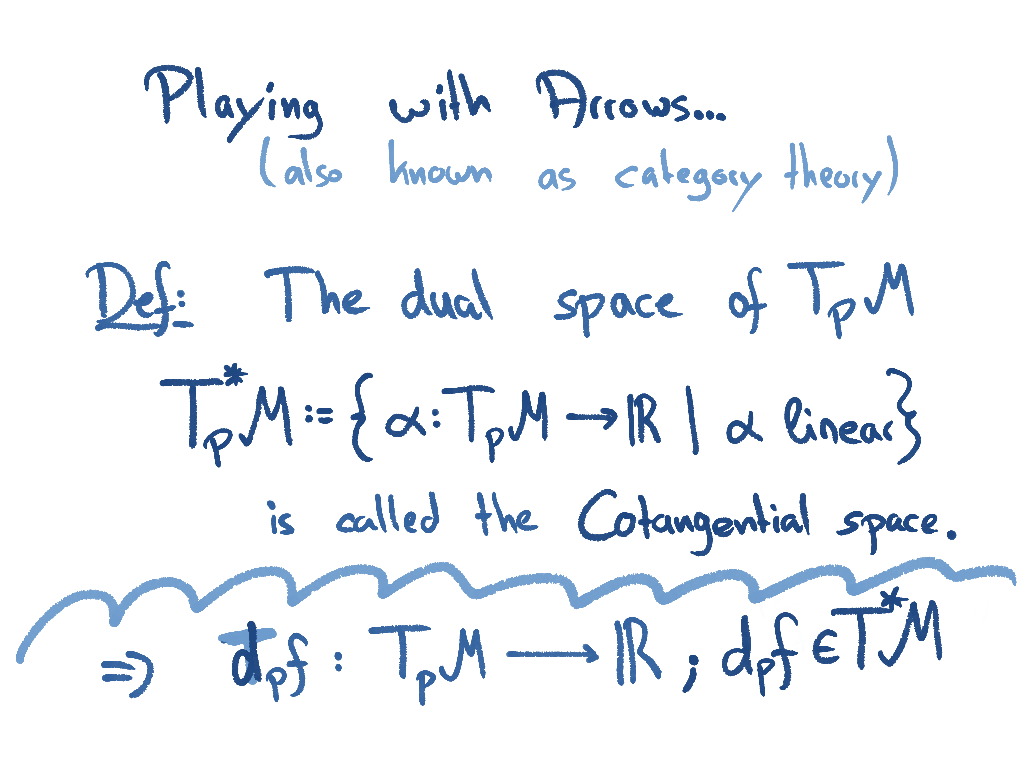 Playing with Arrows...
(also known as category theory)
Def: The dual space of TₚM
Tₚ*M := { α: TₚM → ℝ | α linear}
is called the Cotangential space.
⇒ dₚf : TₚM → ℝ ; dₚf ∈ T*M